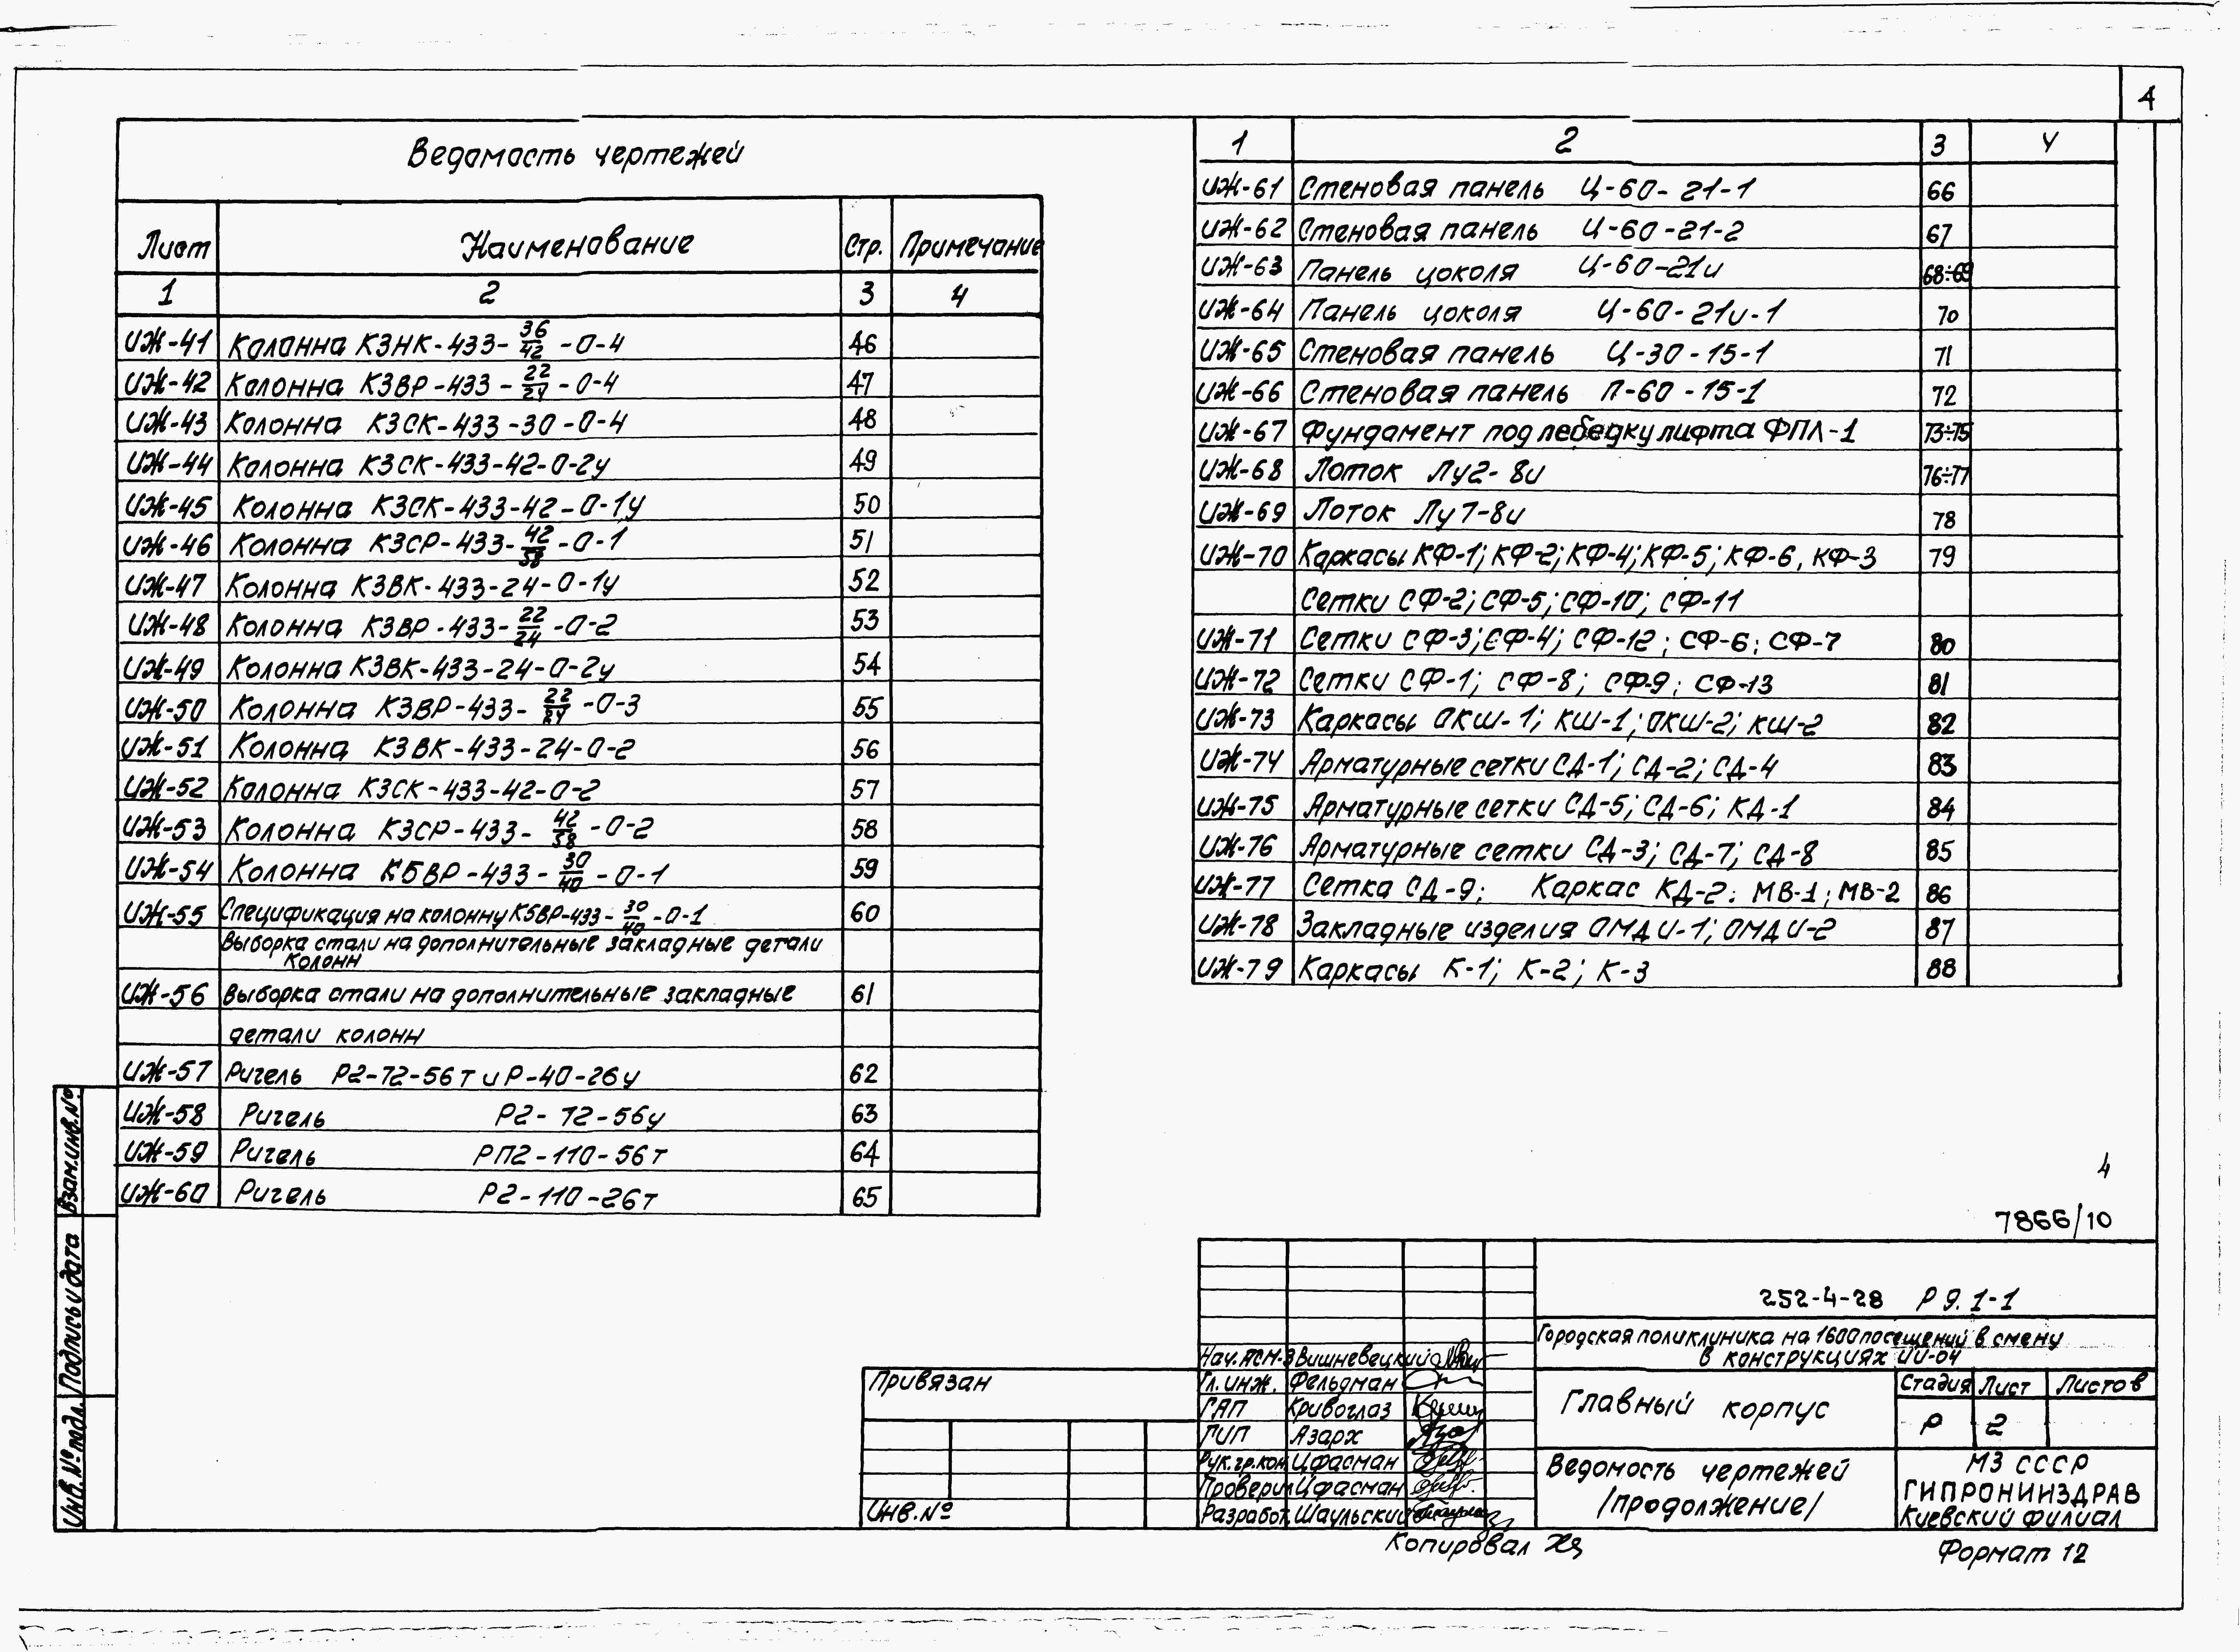 4
Ведомость чертежей
Лист Наименование Стр. Примечание
1 2 3 4
ИЖ-41 Колонна К3НК-433-36/42-0-4 46
ИЖ-42 Колонна К3ВР-433-22/24-0-4 47
ИЖ-43 Колонна К3СК-433-30-0-4 48
ИЖ-44 Колонна К3СК-433-42-0-2у 49
ИЖ-45 Колонна К3СК-433-42-0-1у 50
ИЖ-46 Колонна К3СР-433-42/58-0-1 51
ИЖ-47 Колонна К3ВК-433-24-0-1у 52
ИЖ-48 Колонна К3ВР-433-22/24-0-2 53
ИЖ-49 Колонна К3ВК-433-24-0-2у 54
ИЖ-50 Колонна К3ВР-433-22/24-0-3 55
ИЖ-51 Колонна К3ВК-433-24-0-2 56
ИЖ-52 Колонна К3СК-433-42-0-2 57
ИЖ-53 Колонна К3СР-433-42/58-0-2 58
ИЖ-54 Колонна К5ВР-433-30/40-0-1 59
ИЖ-55 Спецификация на колонну К5ВР-433-30/40-0-1 60
Выборка стали на дополнительные закладные детали
колонн
ИЖ-56 Выборка стали на дополнительные закладные 61
детали колонн
ИЖ-57 Ригель Р2-72-56т и Р-40-26у 62
ИЖ-58 Ригель Р2-72-56у 63
ИЖ-59 Ригель РП2-110-56т 64
ИЖ-60 Ригель Р2-110-26т 65
1 2 3 4
ИЖ-61 Стеновая панель Ц-60-21-1 66
ИЖ-62 Стеновая панель Ц-60-21-2 67
ИЖ-63 Панель цоколя Ц-60-21и 68÷69
ИЖ-64 Панель цоколя Ц-60-21и-1 70
ИЖ-65 Стеновая панель Ц-30-15-1 71
ИЖ-66 Стеновая панель П-60-15-1 72
ИЖ-67 Фундамент под лебедку лифта ФПЛ-1 73÷75
ИЖ-68 Лоток Лу2-8и 76÷77
ИЖ-69 Лоток Лу7-8и 78
ИЖ-70 Каркасы КФ-1; КФ-2; КФ-4; КФ-5; КФ-6, КФ-3 79
Сетки СФ-2; СФ-5; СФ-10; СФ-11
ИЖ-71 Сетки СФ-3; СФ-4; СФ-12; СФ-6; СФ-7 80
ИЖ-72 Сетки СФ-1; СФ-8; СФ-9; СФ-13 81
ИЖ-73 Каркасы ОКШ-1; КШ-1; ОКШ-2; КШ-2 82
ИЖ-74 Арматурные сетки СД-1; СД-2; СД-4 83
ИЖ-75 Арматурные сетки СД-5; СД-6; КД-1 84
ИЖ-76 Арматурные сетки СД-3; СД-7; СД-8 85
ИЖ-77 Сетка СД-9; Каркас КД-2: МВ-1; МВ-2 86
ИЖ-78 Закладные изделия ОМДИ-1; ОМДИ-2 87
ИЖ-79 Каркасы К-1; К-2; К-3 88
4
7866/10
252-4-28 Р 9.1-1
Городская поликлиника на 1600 посещений в смену
в конструкциях ИИ-04
Нач. АСМ-3 Вишневецкий
Гл. инж. Фельдман
ГАП Кривоглаз
ГИП Азарх
Рук.гр.кон. Цфасман
Проверил Цфасман
Разработ. Шаульский
Главный корпус
Стадия Лист Листов
Р 2
Ведомость чертежей
/продолжение/
МЗ СССР
ГИПРОНИИЗДРАВ
Киевский филиал
Привязан
Инв. №
Копировал
Формат 12
Взам.инв.№
Подпись и дата
Инв. № подл.